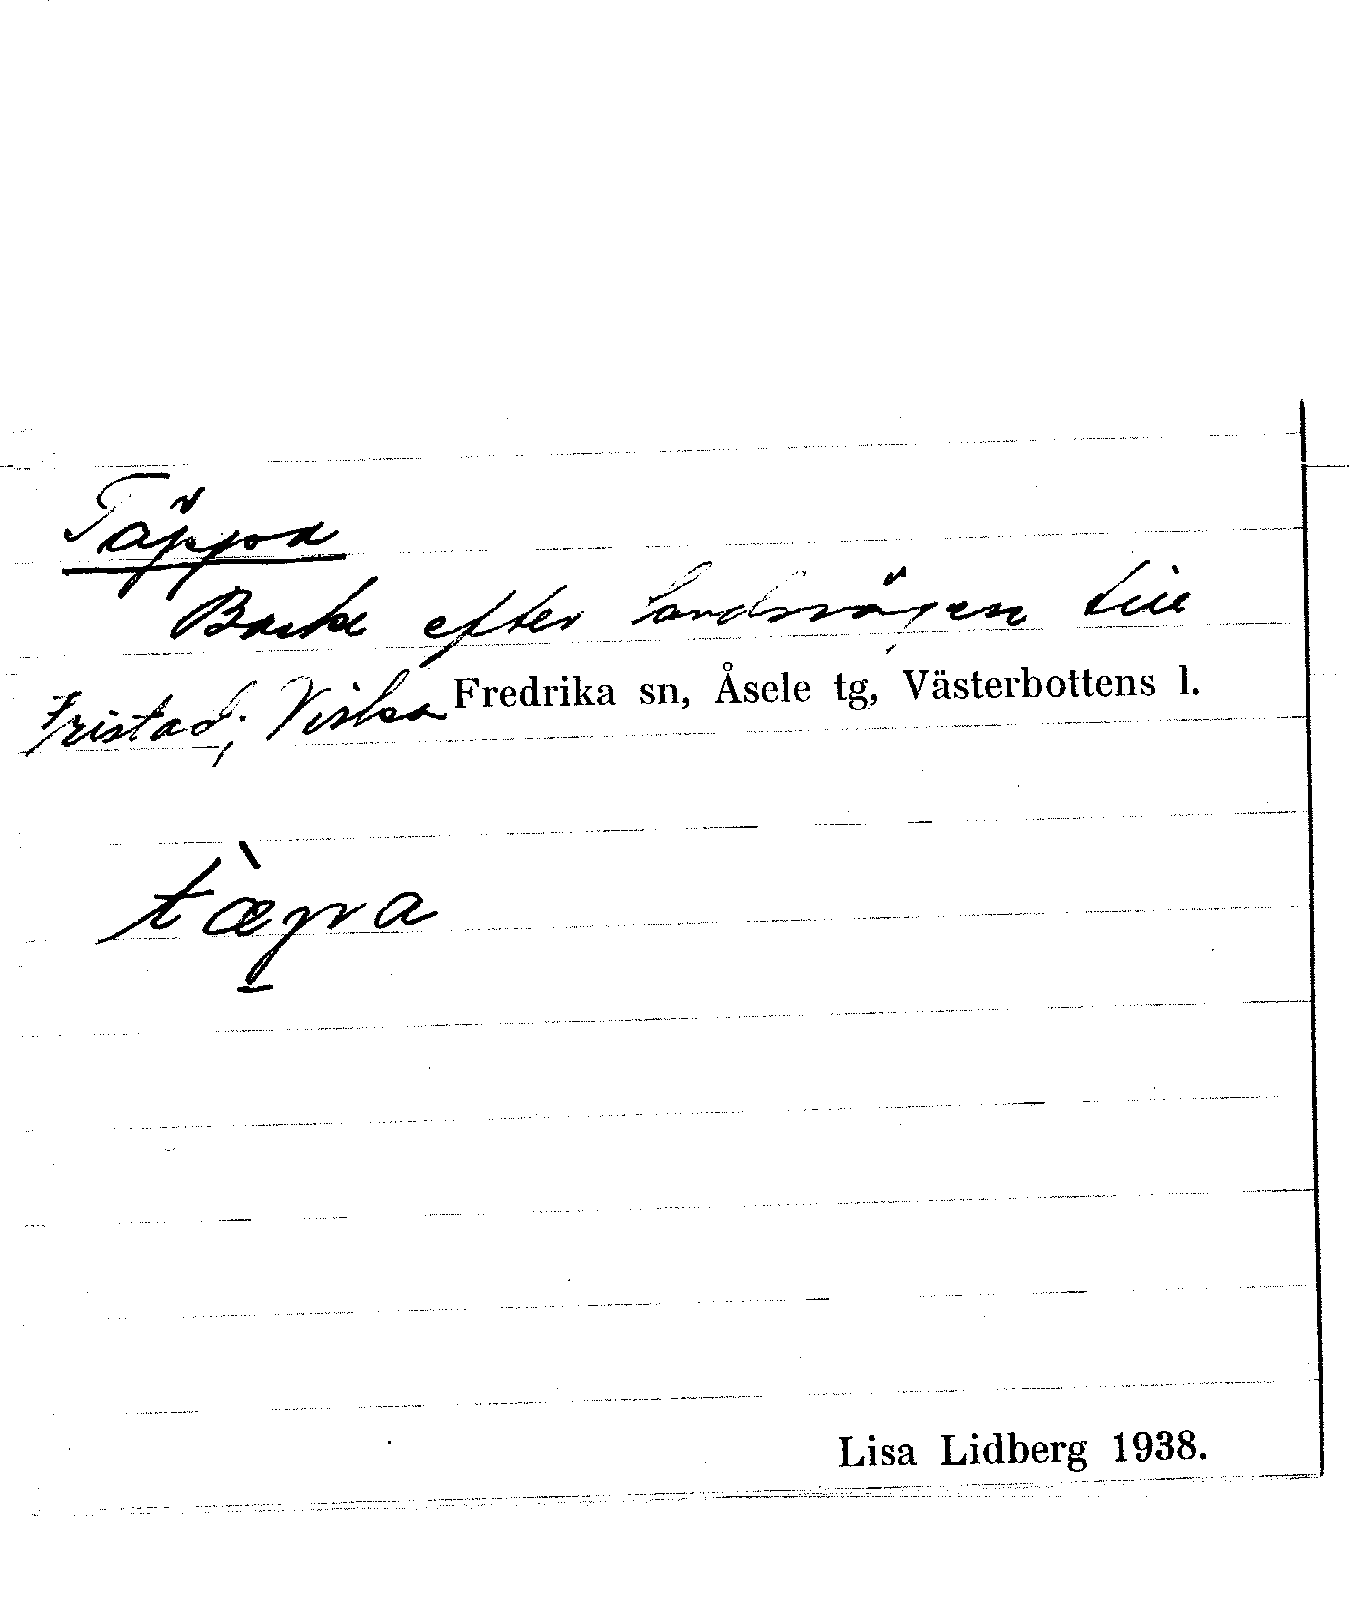 Täppor
Backe efter landsvägen till
Fristad, Viska Fredrika sn, Åsele tg, Västerbottens l.
Lisa Lidberg 1938.